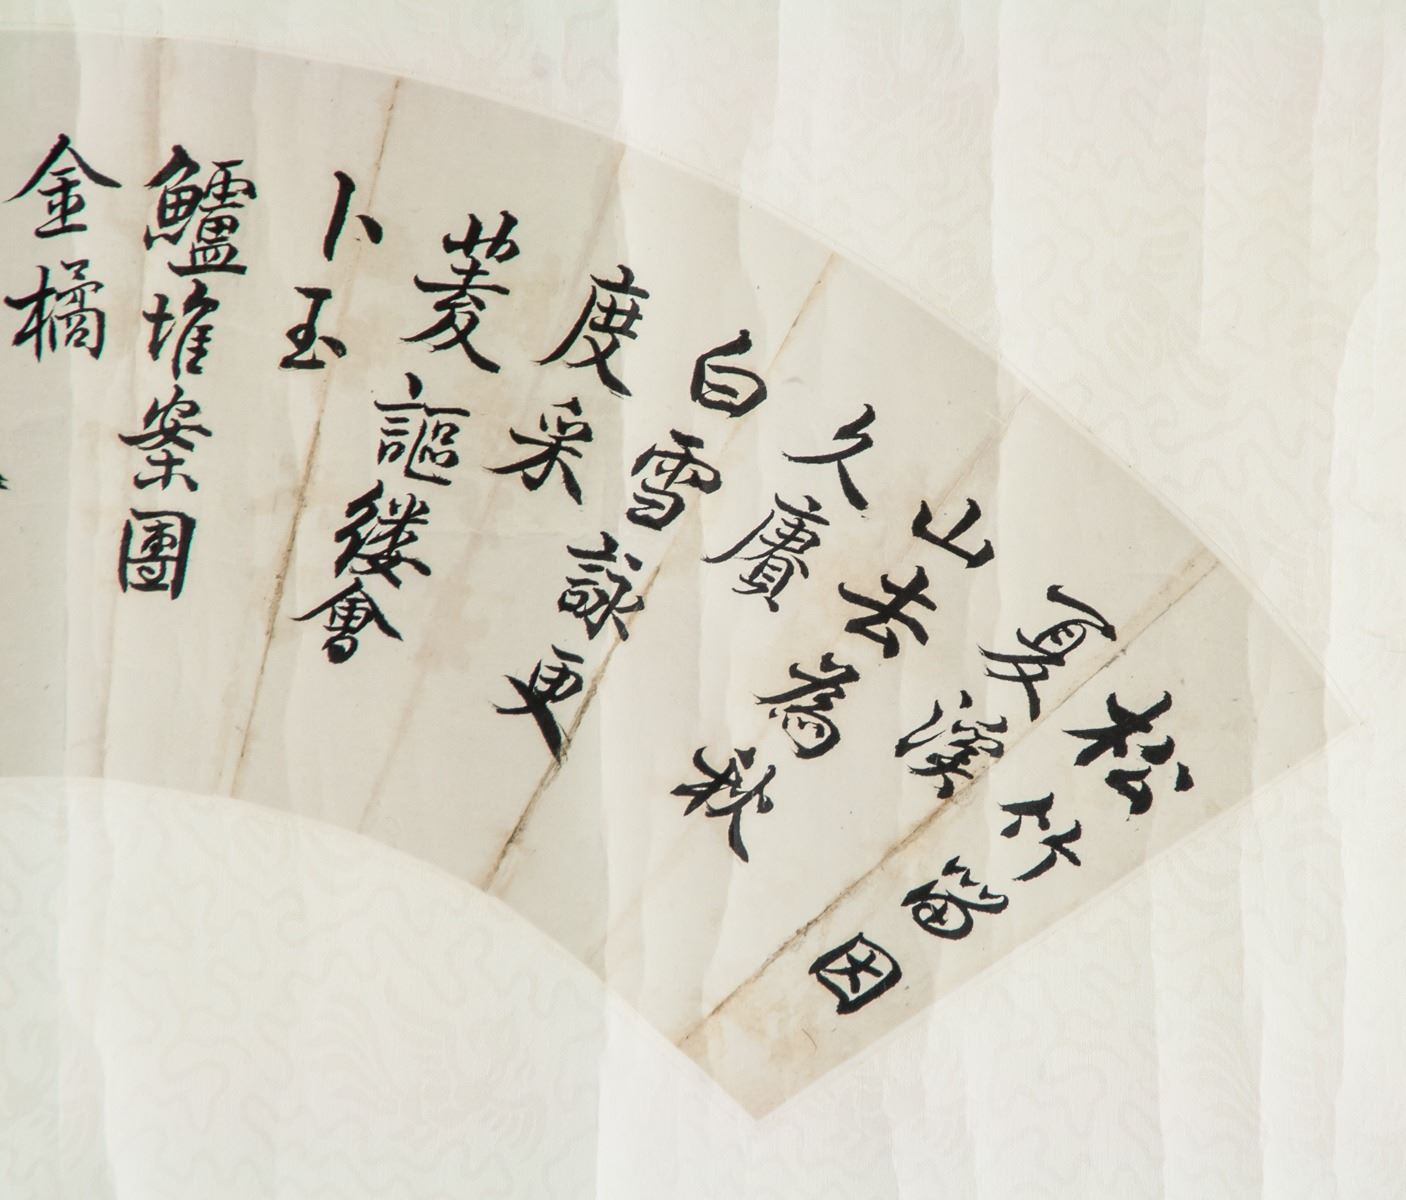 松竹留因
夏溪
山去為秋
久賡
白雪詠更
度采
菱謳縷會
卜玉
鱸堆案團
金橘